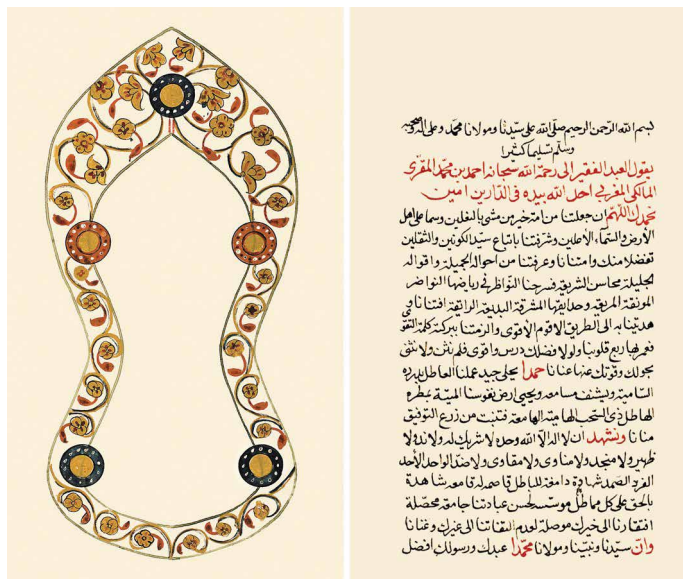 بسم الله الرّحمن الرحيم صلّى الله على سيّدنا ومولانا محمّد وعلى اله وصحبه
وسلّم تسليما كثيرا
يقول العبد الفقير الى رحمة الله سبحانه احمد بن محمّد المقرى
المالكى المغربى اخذ الله بيده فى الدّارين امين
نحمدك اللهمّ ان جعلتنا من امّة خير من مشى بالنعلين وسما على اهل
الأرض والسّماء الأعلين وشرّفتنا باتباع سيّد الكونين والثقلين
تفضلا منك وامتنانا وعرفتنا من احواله الجميلة واقواله
الجليلة محاسن الشريعة فسرحنا النواظر فى رياضها النواضر
المونقة المريعة وحدايقها المشرقة البديعة الرايقة افتنانا و
هديتنا به الى الطريق الاقوم الاقوى والزمتنا ببركته كلمة التقوى
فعمر بها ربع قلوبنا ولولا فضلك درس واقوى فلم نثن ولا نثنى
بحولك وقوتك عنها عنانا حمدا يحلى جيد عملنا العاطل
ويشنف مسامعه ويحيى ارض نفوسنا الميتة بمطره
الهاطل ذى السحب الهامية الهامعة فتنبت من زرع التوفيق
منانا ونشهد ان لا اله الا الله وحده لا شريك له ولا ند ولا
ظهير ولا منجد ولا مناوى ولا مقاوى ولا ضد الواحد الأحد
الفرد الصمد شهادة دامغة للباطل قاصمة له قامعة شاهدة
بالحق على كل مماطل موسسة لحسن عبادتنا جامعة محصلة
افتقارنا الى خيرك موصلة لعدم التفاتنا الى غيرك وغنانا
وانّ سيدنا ونبينا ومولانا محمّدا عبدك ورسولك افضل